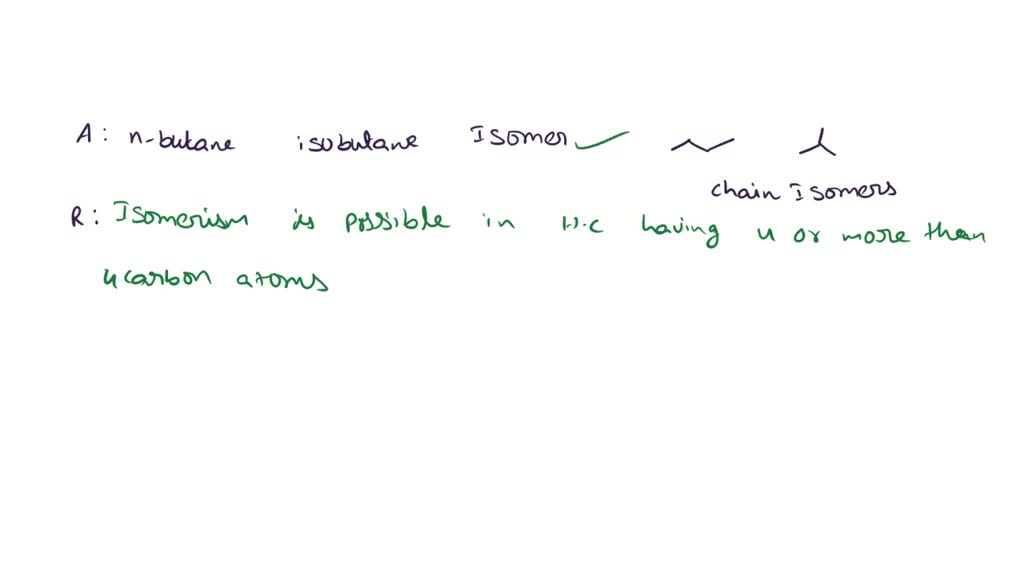 A: n-butane isobutane Isomer
chain Isomers
R: Isomerism is possible in H.C having 4 or more than
4 carbon atoms